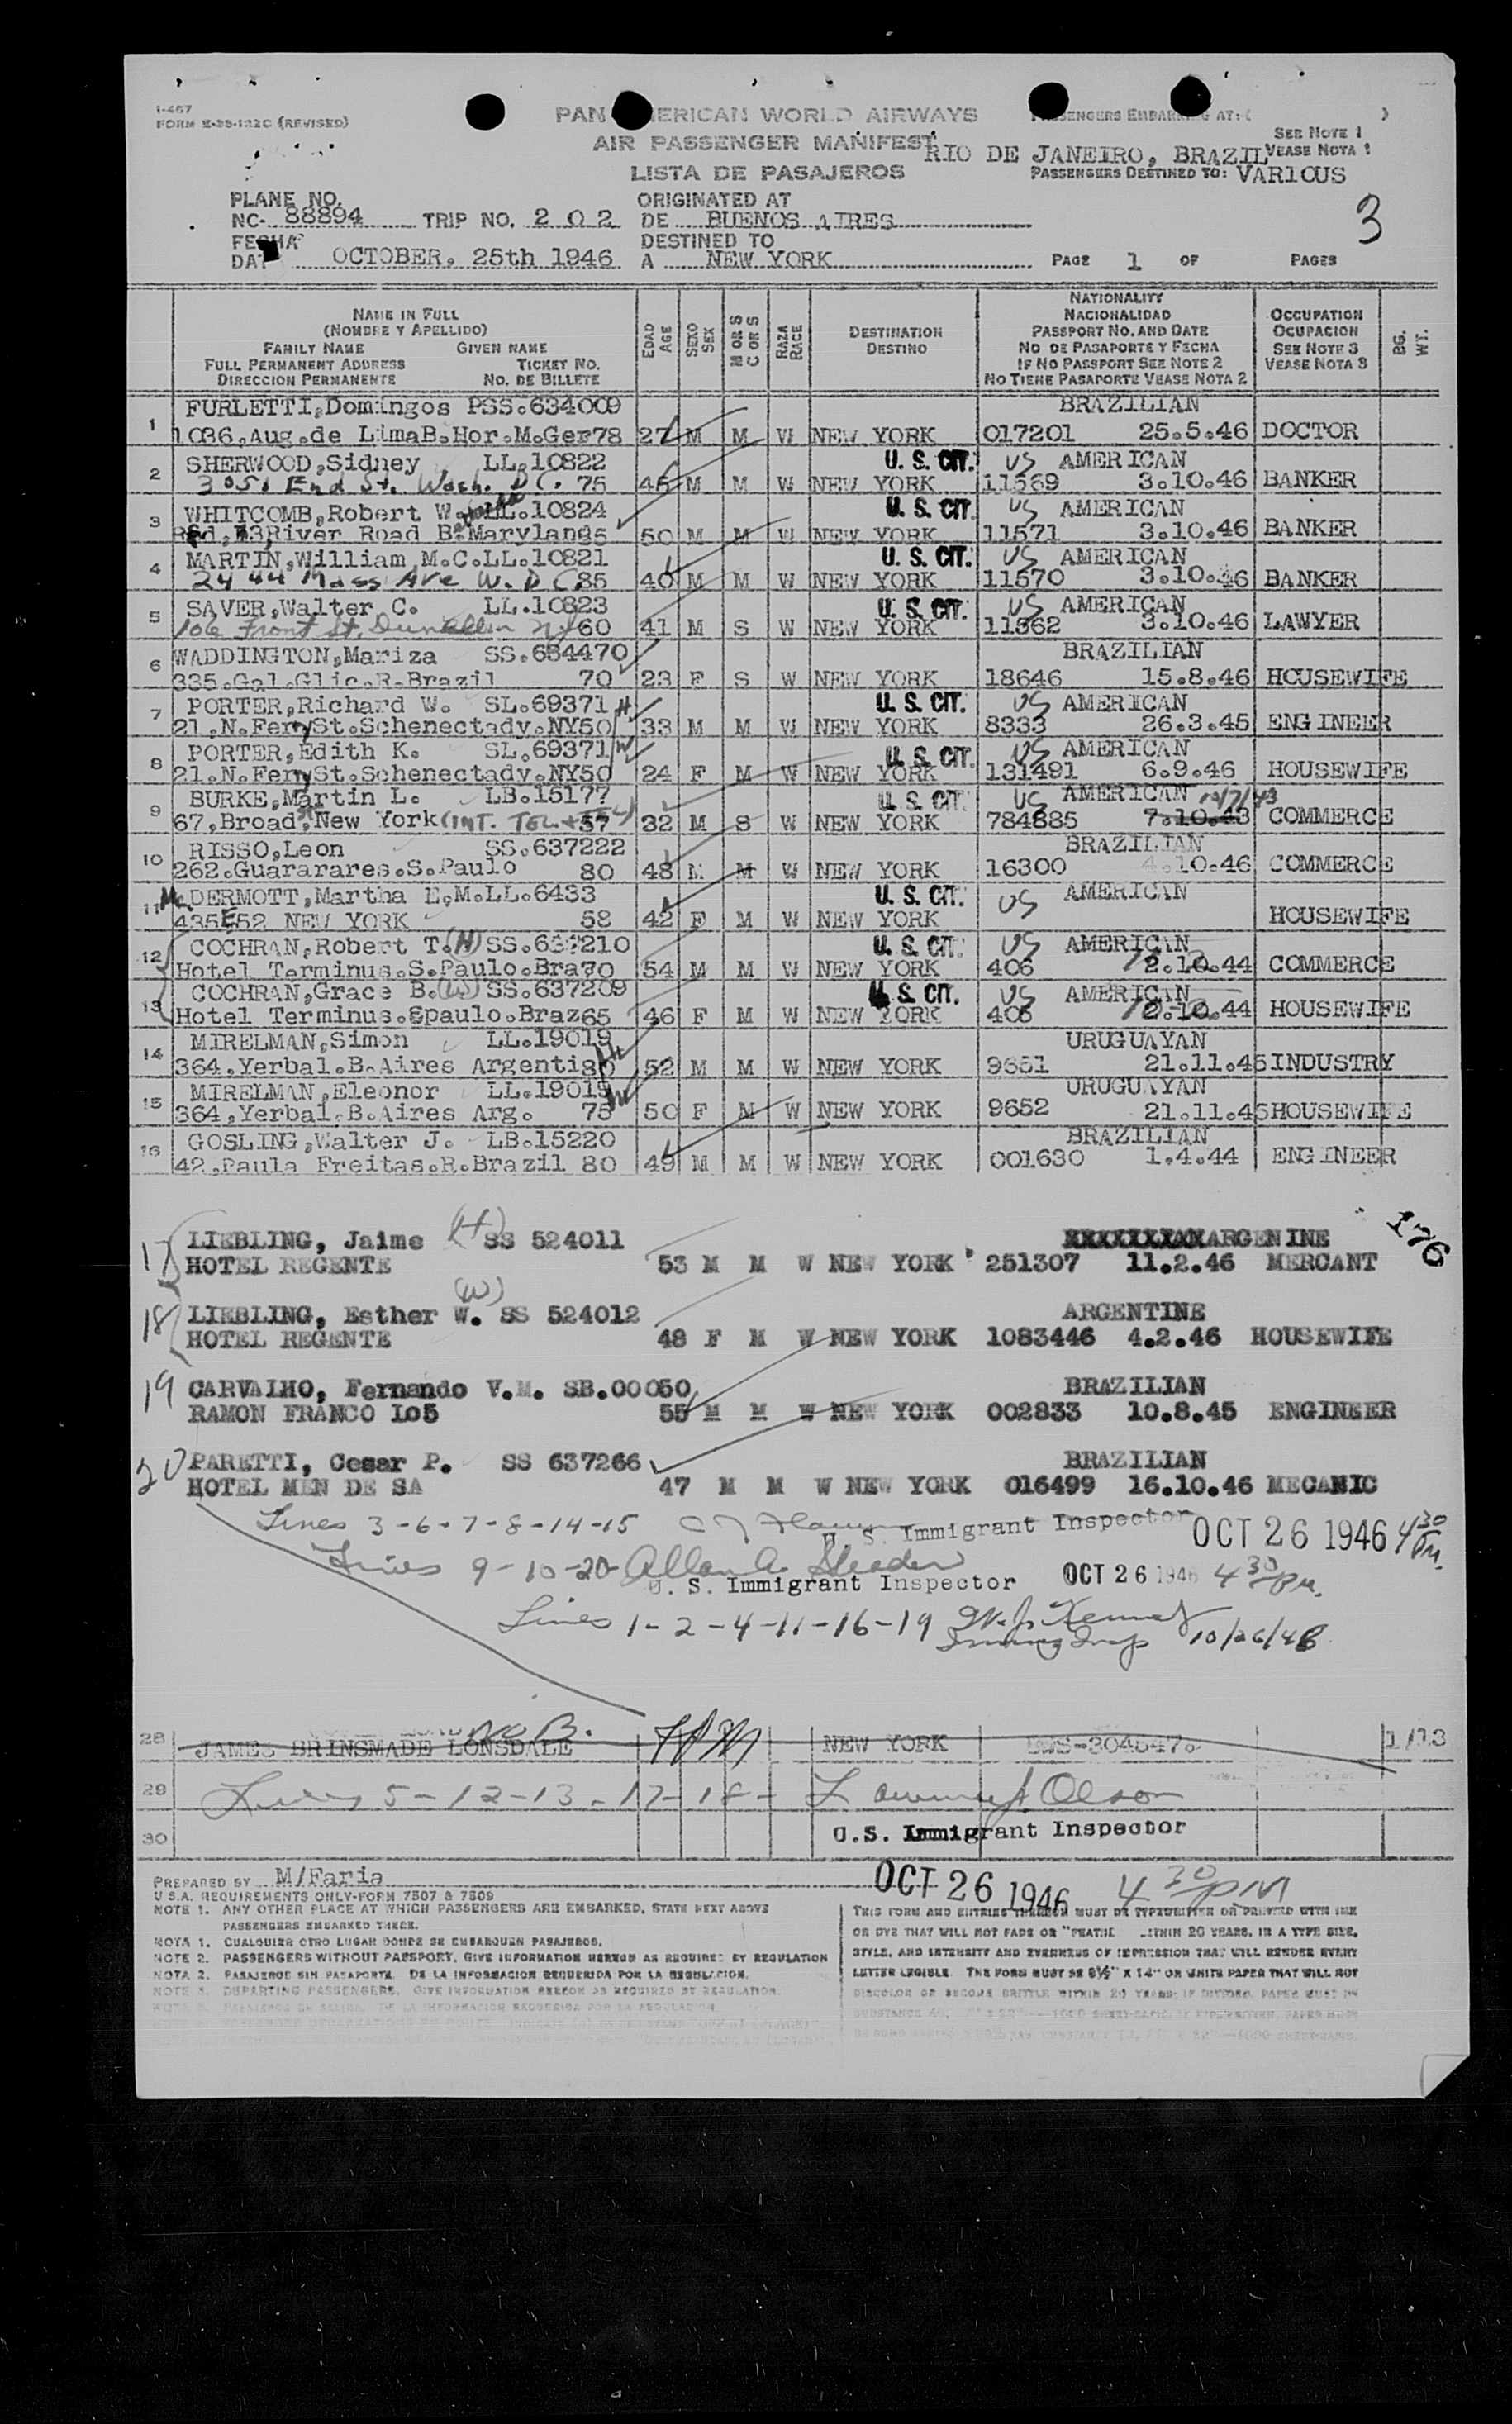 I-467
FORM E-35-122C (REVISED)
PAN AMERICAN WORLD AIRWAYS
AIR PASSENGER MANIFEST
LISTA DE PASAJEROS
PASSENGERS EMBARKING AT: ( )
RIO DE JANEIRO, BRAZIL
SEE NOTE 1
VEASE NOTA 1
PASSENGERS DESTINED TO: VARIOUS
3
PLANE NO.
NC- 88894 TRIP NO. 2 0 2
ORIGINATED AT
DE BUENOS AIRES
FECHA
DATE OCTOBER, 25th 1946
DESTINED TO
A NEW YORK
PAGE 1 OF PAGES
NAME IN FULL
(NOMBRE Y APELLIDO)
FAMILY NAME GIVEN NAME
FULL PERMANENT ADDRESS TICKET NO.
DIRECCION PERMANENTE NO. DE BILLETE
EDAD AGE
SEXO SEX
M OR S C OR S
RAZA RACE
DESTINATION
DESTINO
NATIONALITY
NACIONALIDAD
PASSPORT NO. AND DATE
NO. DE PASAPORTE Y FECHA
IF NO PASSPORT SEE NOTE 2
NO TIENE PASAPORTE VEASE NOTA 2
OCCUPATION
OCUPACION
SEE NOTE 3
VEASE NOTA 3
BG. WT.
1 FURLETTI,Domingos PSS.634009 BRAZILIAN
1036,Aug.de LimaB.Hor.M.Ger78 27 M M W NEW YORK 017201 25.5.46 DOCTOR
2 SHERWOOD,Sidney LL.10822 U. S. CIT. US AMERICAN
3051 End St. Wash. D C. 75 45 M M W NEW YORK 11569 3.10.46 BANKER
3 WHITCOMB,Robert W. LL.10824 U. S. CIT. US AMERICAN
River Road B. Maryland 50 M M W NEW YORK 11571 3.10.46 BANKER
4 MARTIN,William M.C.LL.10821 U. S. CIT. US AMERICAN
2444 Mass Ave W. D C. 85 40 M M W NEW YORK 11570 3.10.46 BANKER
5 SAVER,Walter C. LL.10823 U. S. CIT. US AMERICAN
106 Front St. Dunellen NJ 60 41 M S W NEW YORK 11562 3.10.46 LAWYER
6 WADDINGTON,Mariza SS.634470 BRAZILIAN
335.Gal.Glic.R.Brazil 70 23 F S W NEW YORK 18646 15.8.46 HOUSEWIFE
7 PORTER,Richard W. SL.69371 H U. S. CIT. US AMERICAN
21.N.Ferry St.Schenectady.NY50 33 M M W NEW YORK 8333 26.3.45 ENGINEER
8 PORTER,Edith K. SL.69371 W U. S. CIT. US AMERICAN
21.N.Ferry St.Schenectady.NY50 24 F M W NEW YORK 131491 6.9.46 HOUSEWIFE
9 BURKE,Martin L. LB.15177 U. S. CIT. US AMERICAN 10/7/43
67,Broad,New York (INT. TEL + TEL) 57 32 M S W NEW YORK 784885 7.10.43 COMMERCE
10 RISSO,Leon SS.637222 BRAZILIAN
262.Guararares.S.Paulo 80 48 M M W NEW YORK 16300 4.10.46 COMMERCE
11 McDERMOTT,Martha E.M.LL.6433 U. S. CIT. US AMERICAN
435E52 NEW YORK 58 42 F M W NEW YORK HOUSEWIFE
12 COCHRAN,Robert T.(H) SS.637210 U. S. CIT. US AMERICAN
Hotel Terminus.S.Paulo.Bra70 54 M M W NEW YORK 406 2.10.44 COMMERCE
13 COCHRAN,Grace B.(W) SS.637209 U. S. CIT. US AMERICAN
Hotel Terminus.Spaulo.Braz65 46 F M W NEW YORK 406 2.10.44 HOUSEWIFE
14 MIRELMAN,Simon LL.19019 URUGUAYAN
364.Yerbal.B.Aires Argenti80 H 52 M M W NEW YORK 9651 21.11.45 INDUSTRY
15 MIRELMAN,Eleonor LL.19019 W URUGUAYAN
364,Yerbal.B.Aires Arg. 75 50 F M W NEW YORK 9652 21.11.45 HOUSEWIFE
16 GOSLING,Walter J. LB.15220 BRAZILIAN
42,Paula Freitas.R.Brazil 80 49 M M W NEW YORK 001630 1.4.44 ENGINEER
17 LIEBLING, Jaime (H) SS 524011 ARGENINE
HOTEL REGENTE 53 M M W NEW YORK 251307 11.2.46 MERCANT
176
18 LIEBLING, Esther W. (W) SS 524012 ARGENTINE
HOTEL REGENTE 48 F M W NEW YORK 1083446 4.2.46 HOUSEWIFE
19 CARVALHO, Fernando V.M. SB.00050 BRAZILIAN
RAMON FRANCO 105 55 M M W NEW YORK 002833 10.8.45 ENGINEER
20 PARETTI, Cesar P. SS 637266 BRAZILIAN
HOTEL MEN DE SA 47 M M W NEW YORK 016499 16.10.46 MECANIC
Lines 3-6-7-8-14-15 U. S. Immigrant Inspector OCT 26 1946 4 30 Pm.
Lines 9-10-20
U. S. Immigrant Inspector OCT 26 1946 4 30 Pm.
Lines 1-2-4-11-16-19 W. J. Kenney
Immig Insp 10/26/46
28 JAMES BRINSMADE LONSDALE NOB. NEW YORK 1/13
29 Lines 5-12-13-17-18- Olson
30 U.S. Immigrant Inspector
PREPARED BY M/Faria
OCT 26 1946 4 30 PM
U.S.A. REQUIREMENTS ONLY-FORM 7507 & 7509
NOTE 1. ANY OTHER PLACE AT WHICH PASSENGERS ARE EMBARKED, STATE NEXT ABOVE
PASSENGERS EMBARKED THERE.
NOTA 1. CUALQUIER OTRO LUGAR DONDE SE EMBARQUEN PASAJEROS.
NOTE 2. PASSENGERS WITHOUT PASSPORT, GIVE INFORMATION HEREON AS REQUIRED BY REGULATION
NOTA 2. PASAJEROS SIN PASAPORTE. DE LA INFORMACION REQUERIDA POR LA REGULACION.
NOTE 3. DEPARTING PASSENGERS. GIVE INFORMATION HEREON AS REQUIRED BY REGULATION.
THIS FORM AND ENTRIES THEREON MUST BE TYPEWRITTEN OR PRINTED WITH INK
OR DYE THAT WILL NOT FADE OR "FEATHE WITHIN 20 YEARS, IN A TYPE SIZE,
STYLE, AND INTENSITY AND EVENNESS OF IMPRESSION THAT WILL RENDER EVERY
LETTER LEGIBLE. THE FORM MUST BE 8½" X 14" ON WHITE PAPER THAT WILL NOT
DISCOLOR OR BECOME BRITTLE WITHIN 20 YEARS; IF DIVIDED, PAPER MUST IN